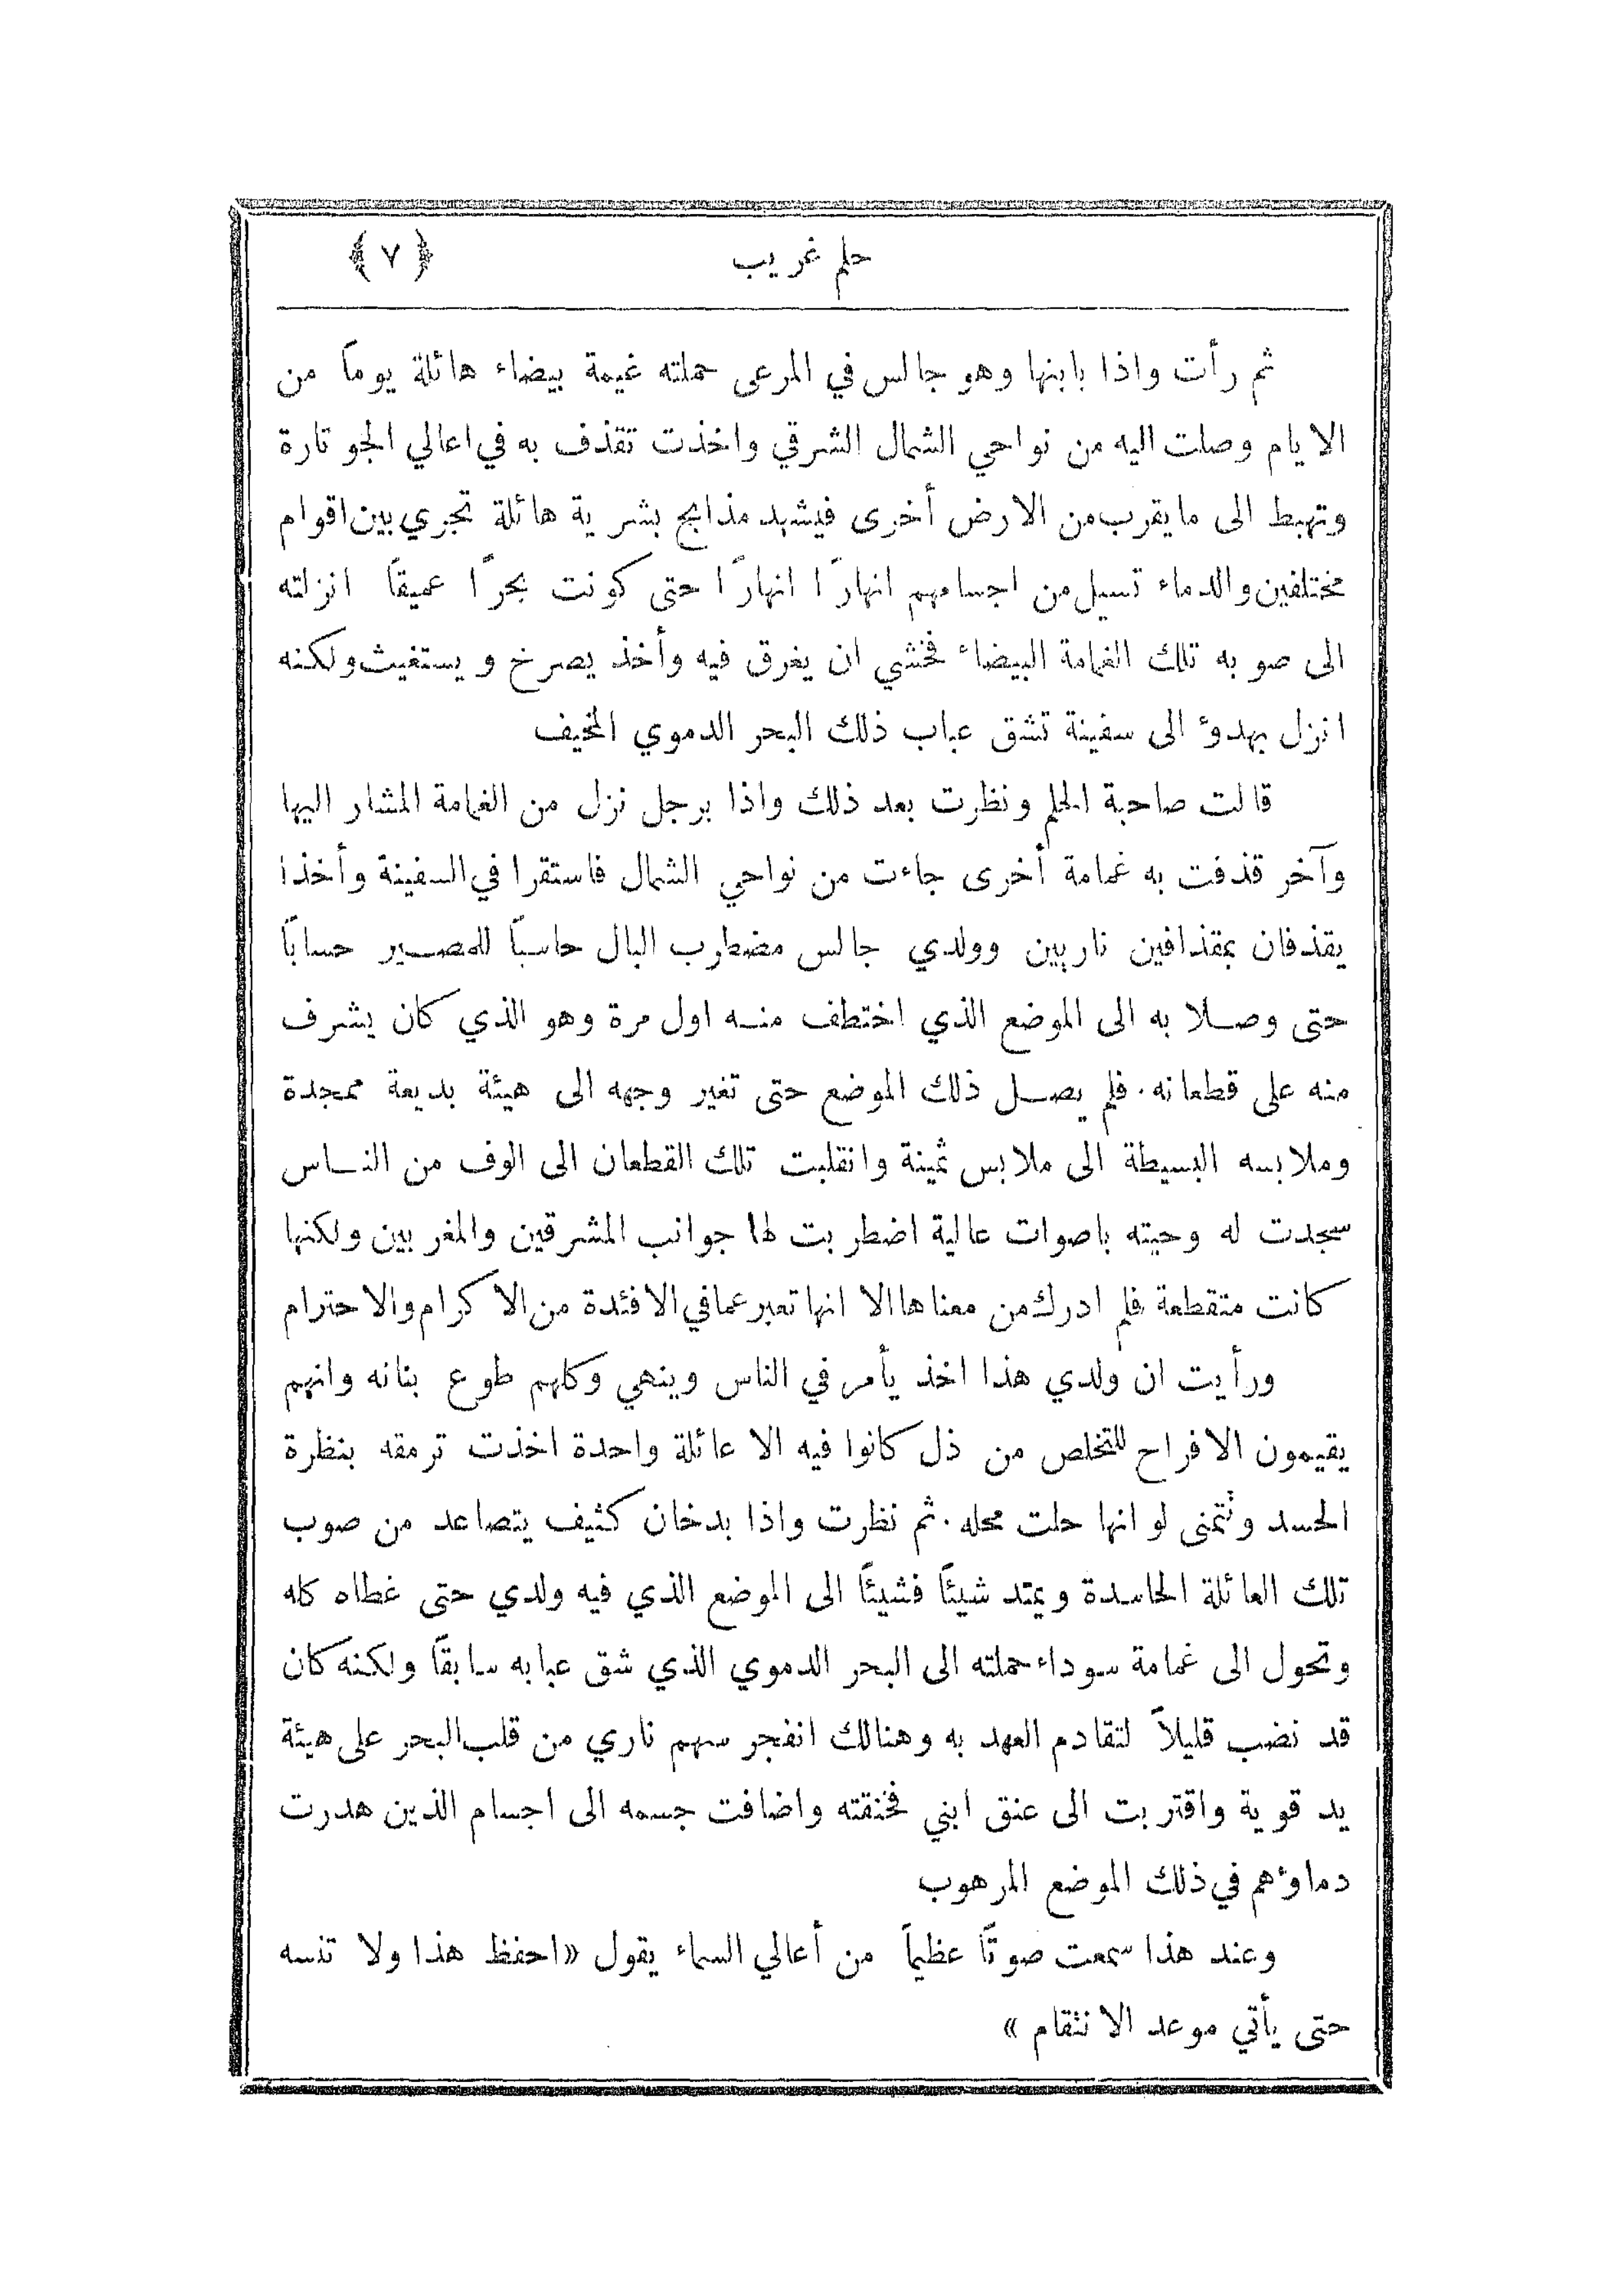 حلم غريب ﴿ ٧ ﴾
ثم رأت واذا بابنها وهو جالس في المرعى حملته غيمة بيضاء هائلة يوماً من
الايام وصلت اليه من نواحي الشمال الشرقي واخذت تقذف به في اعالي الجو تارة
وتهبط الى ما يقرب من الارض أخرى فيشهد مذابح بشرية هائلة تجري بين اقوام
مختلفين والدماء تسيل من اجسامهم انهارًا انهارًا حتى كونت بحرًا عميقاً انزلته
الى صوبه تلك الغمامة البيضاء فخشي ان يغرق فيه وأخذ يصرخ ويستغيث ولكنه
انزل بهدوء الى سفينة تشق عباب ذلك البحر الدموي المخيف
قالت صاحبة الحلم ونظرت بعد ذلك واذا برجل نزل من الغمامة المشار اليها
وآخر قذفت به غمامة أخرى جاءت من نواحي الشمال فاستقرا في السفينة وأخذا
يقذفان بمقذافين ناريين وولدي جالس مضطرب البال حاسباً للمصير حساباً
حتى وصلا به الى الموضع الذي اختطف منه اول مرة وهو الذي كان يشرف
منه على قطعانه. فلم يصل ذلك الموضع حتى تغير وجهه الى هيئة بديعة ممجدة
وملابسه البسيطة الى ملابس ثمينة وانقلبت تلك القطعان الى الوف من الناس
سجدت له وحيته باصوات عالية اضطربت لها جوانب المشرقين والمغربين ولكنها
كانت متقطعة فلم ادرك من معناها الا انها تعبر عما في الافئدة من الاكرام والاحترام
ورأيت ان ولدي هذا اخذ يأمر في الناس وينهي وكلهم طوع بنانه وانهم
يقيمون الافراح للتخلص من ذل كانوا فيه الا عائلة واحدة اخذت ترمقه بنظرة
الحسد وتتمنى لو انها حلت محله. ثم نظرت واذا بدخان كثيف يتصاعد من صوب
تلك العائلة الحاسدة ويمتد شيئاً فشيئاً الى الموضع الذي فيه ولدي حتى غطاه كله
وتحول الى غمامة سوداء حملته الى البحر الدموي الذي شق عبابه سابقاً ولكنه كان
قد نضب قليلاً لتقادم العهد به وهنالك انفجر سهم ناري من قلب البحر على هيئة
يد قوية واقتربت الى عنق ابني فخنقته واضافت جسمه الى اجسام الذين هدرت
دماؤهم في ذلك الموضع المرهوب
وعند هذا سمعت صوتاً عظيماً من أعالي السماء يقول «احفظ هذا ولا تنسه
حتى يأتي موعد الانتقام»